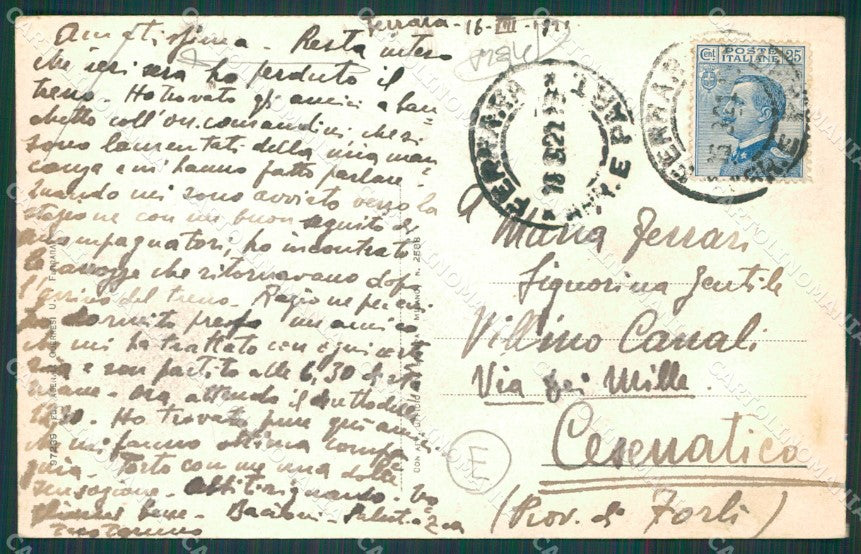 Ferrara - 16 - VIII - 1922
Amatissima - Resta inteso
che ieri sera ho perduto il
treno. Ho trovato gli amici a ban
chetto coll'on. che si
sono lamentati della mia man
canza e mi hanno fatto parlare.
Quando mi sono avviato verso la
stazione con un buon seguito di
accompagnatori, ho incontrato
le carrozze che ritornavano dopo
l'arrivo del treno. Ragione per cui
ho dormito presso un amico
che mi ha trattato con ogni
e son partito alle 6,30 di
mane. Ora, attendo il
12.10. Ho trovato pure qui amici
che mi fanno ottima compa
gnia. Porto con me una dolce
sensazione.
bene - Bacioni - Saluti a Zea
POSTE
ITALIANE
Cent 25
FERRARA
ARR. E PART.
16 8 22
FERRARA
A
Maria Ferrari
Signorina Gentile
Villino Canali
Via dei Mille.
Cesenatico
(Prov. di Forlì)
E
MILANO - N. 2588
CARTOLINOMANIA